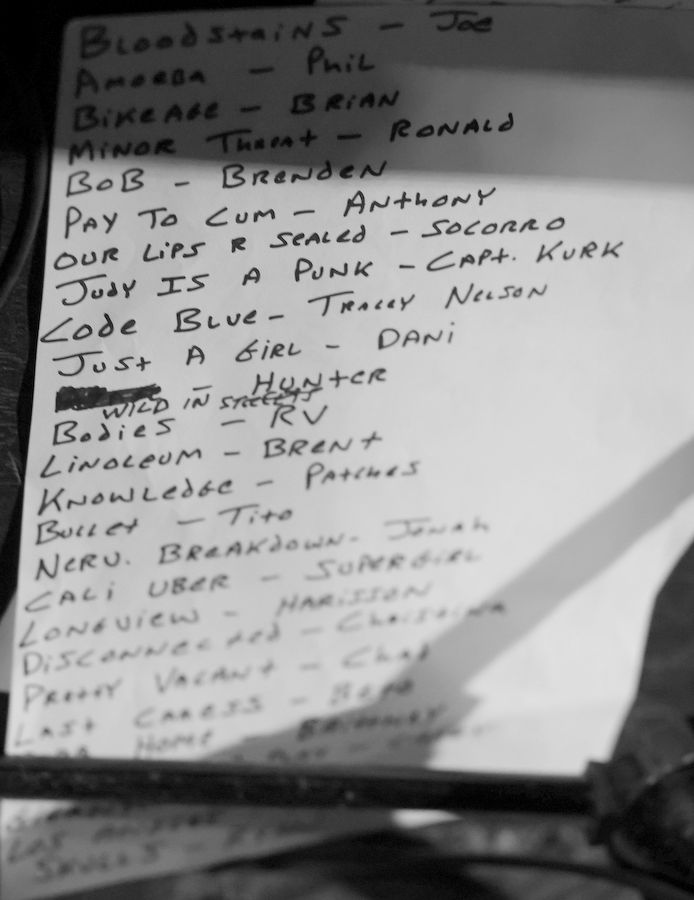 BLOODSTAINS - JOE
AMOEBA - PHIL
BIKEAGE - BRIAN
MINOR THREAT - RONALD
BOB - BRENDEN
PAY TO CUM - ANTHONY
OUR LIPS R SEALED - SOCORRO
JUDY IS A PUNK - CAPT. KURK
CODE BLUE - TRACEY NELSON
JUST A GIRL - DANI
- HUNTER
WILD IN STREETS
BODIES - RV
LINOLEUM - BRENT
KNOWLEDGE - PATCHES
BULLET - TITO
NERV. BREAKDOWN - JONAH
CALI UBER - SUPERGIRL
LONGVIEW - HARISSON
DISCONNECTED - CHRISTINA
PRETTY VACANT - CHAD
LAST CARESS -
HOME - BRITTNEY
LOS
SKULLS -